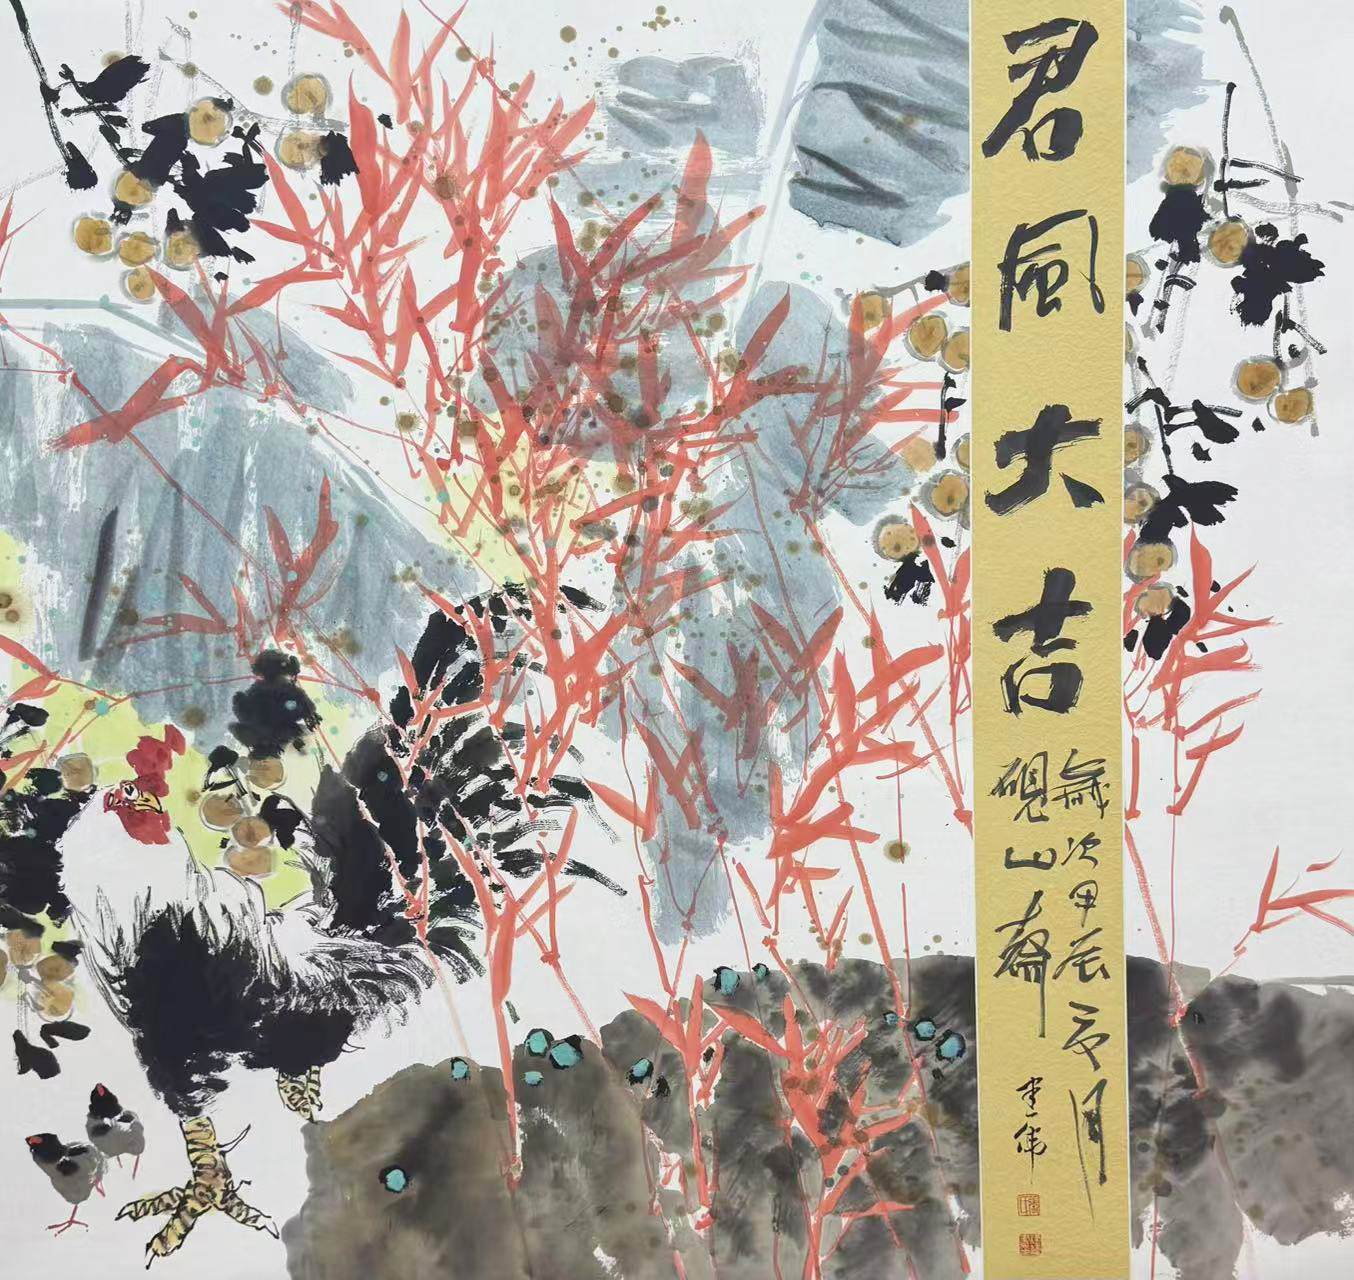 君風大吉
歲次甲辰
月
硯山齋